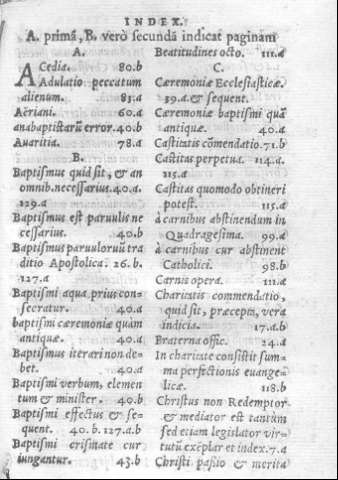 INDEX.
A. primã, B. verò secundã indicat paginam
A.
ACedia. 80.b
Adulatio peccatum
alienum. 83.a
Aëriani. 60.a
anabaptistarũ error. 40.b
Avaritia. 78.a
B.
Baptismus quid sit, & an
omnib. necessarius. 40.a.
129.a
Baptismus est paruulis ne
cessarius. 40.b
Baptismus paruulorũ tra
ditio Apostolica. 26.b.
127.a
Baptismi aqua prius con-
secratur. 40.a
baptismi cæremoniæ quàm
antiquæ. 40.a
Baptismus iterari non de-
bet. 40.a
Baptismi verbum, elemen
tum & minister. 40.b
Baptismi effectus & se-
quent. 40.b. 127.a.b
Baptismi crismate cur
iungantur. 43.b
Beatitudines octo. 111.a
C.
Cæremoniæ Ecclesiasticæ.
39.a. & sequent.
Cæremoniæ baptismi quã
antiquæ. 40.a
Castitatis cõmendatio. 71.b
Castitas perpetua. 114.a.
115.a
Castitas quomodo obtineri
potest. 115.a
à carnibus abstinendum in
Quadragesima. 99.a
à carnibus cur abstinent
Catholici. 98.b
Carnis opera. 111.a
Charitatis commendatio,
quid sit, præcepta, vera
indicia. 17.a.b
Fraterna offic. 24.a
In charitate consistit sum-
ma perfectionis euange-
licæ. 118.b
Christus non Redemptor
& mediator est tantùm
sed etiam legislator vir-
tutũ exẽplar et index. 7.a
Christi passio & merita